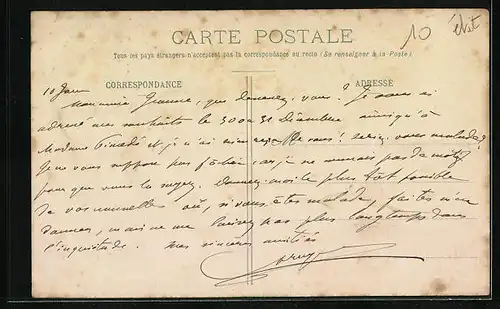 CARTE POSTALE
10 état
Tous les pays étrangers n'acceptent pas la correspondance au recto (Se renseigner à la Poste)
CORRESPONDANCE ADRESSE
10 Janv
Mon amie Jeanne, que devenez-vous? Je vous ai
adressé mes souhaits le 30 ou 31 Décembre ainsi qu'à
Madame et je n'ai rien reçu de vous! seriez-vous malade?
Je ne vous suppose pas fâchée car je ne connais pas de motif
pour que vous la soyez. Donnez-moi le plus tôt possible
de vos nouvelles où, si vous êtes malade, faites m'en
donner, mais ne me laissez pas plus longtemps dans
l'inquiétude. Mes sincères amitiés